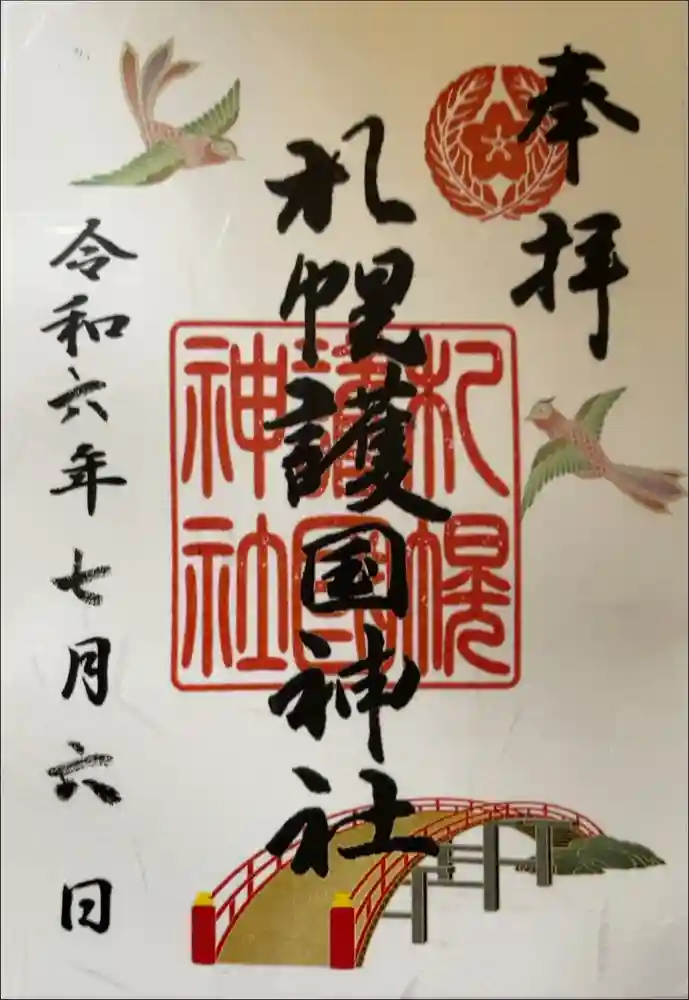 奉拝
札幌護国神社
札幌
護国
神社
令和六年七月六日